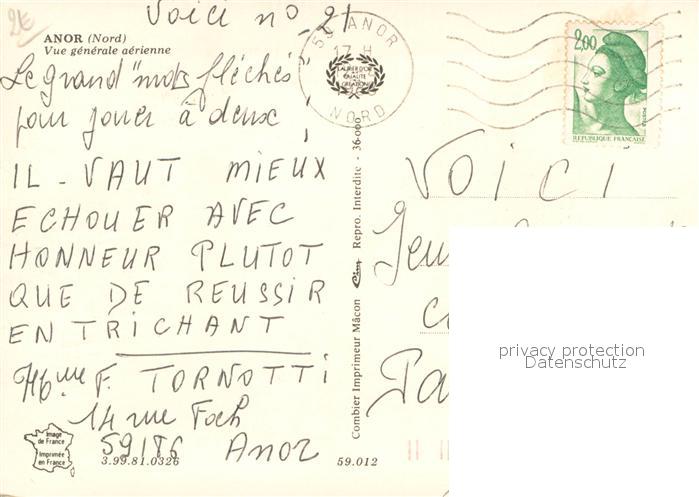 2€
Voici n° 21
ANOR (Nord)
Vue générale aérienne
Le grand "mots fléchés
pour jouer à deux
IL - VAUT MIEUX
ECHOUER AVEC
HONNEUR PLUTOT
QUE DE REUSSIR
EN TRICHANT
F. TORNOTTI
14 rue Foch
59186 Anor
Image
de France
Imprimée
en France
3.99.81.0326
59.012
Combier Imprimeur Mâcon Cim Repro. Interdite - 36.000
59 ANOR
17 H
NORD
2,00
REPUBLIQUE FRANÇAISE
VOICI
Jeu
privacy protection
Datenschutz